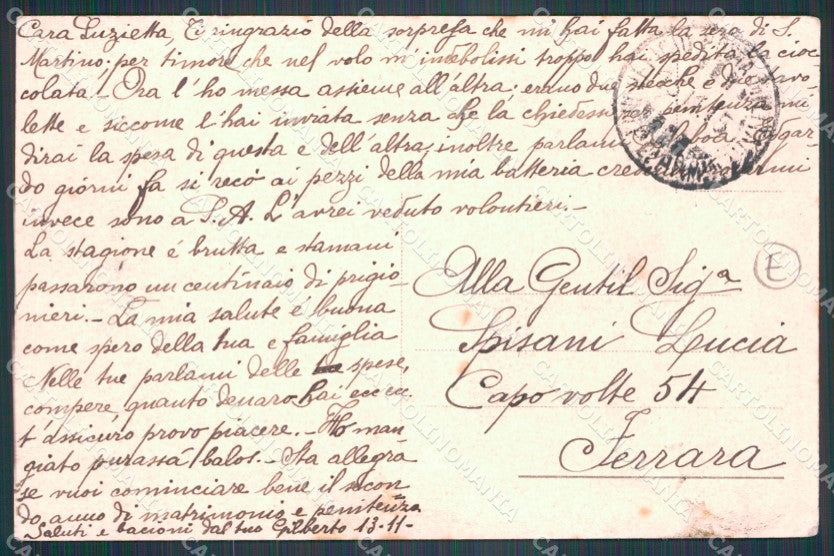 Cara Luzietta, Ti ringrazio della sorpresa che mi hai fatta la sera di S.
Martino; per timore che nel volo m'indebolissi troppo hai spedita la cioc-
colata! Ora l'ho messa assieme all'altra; erano due stecche e 11
lette e siccome l'hai inviata senza che la chiedessi penitenza mi
dirai la spesa di questa e dell'altra; inoltre parlami
do giorni fa si recò ai pezzi della mia batteria
invece sono a S.A. L'avrei veduto volontieri.-
La stagione é brutta e stamani
passarono un centinaio di prigio-
nieri.- La mia salute é buona
come spero della tua e famiglia
Nelle tue parlami delle spese,
compere, quanto denaro hai ecc ecc.
t'assicuro provo piacere.- Ho man-
giato purassá balos.- Sta allegra
se vuoi cominciare bene il secon
do anno di matrimonio e penitenza
Saluti e bacioni dal tuo Gilberto 13-11-
Alla Gentil Sigª
Spisani Lucia
Capo volte 54
Ferrara
E
CARTOLINOMANIA